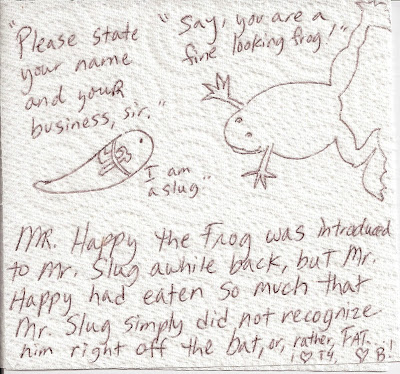 "Please state
your name
and youR
business, sir."
"Say, you are a
fine looking frog!"
I am
a slug
MR. Happy the Frog was introduced
to Mr. Slug awhile back, but Mr.
Happy had eaten so much that
Mr. Slug simply did not recognize
him right off the bat, or, rather, FAT.
I ♡ TY. ♡ B.